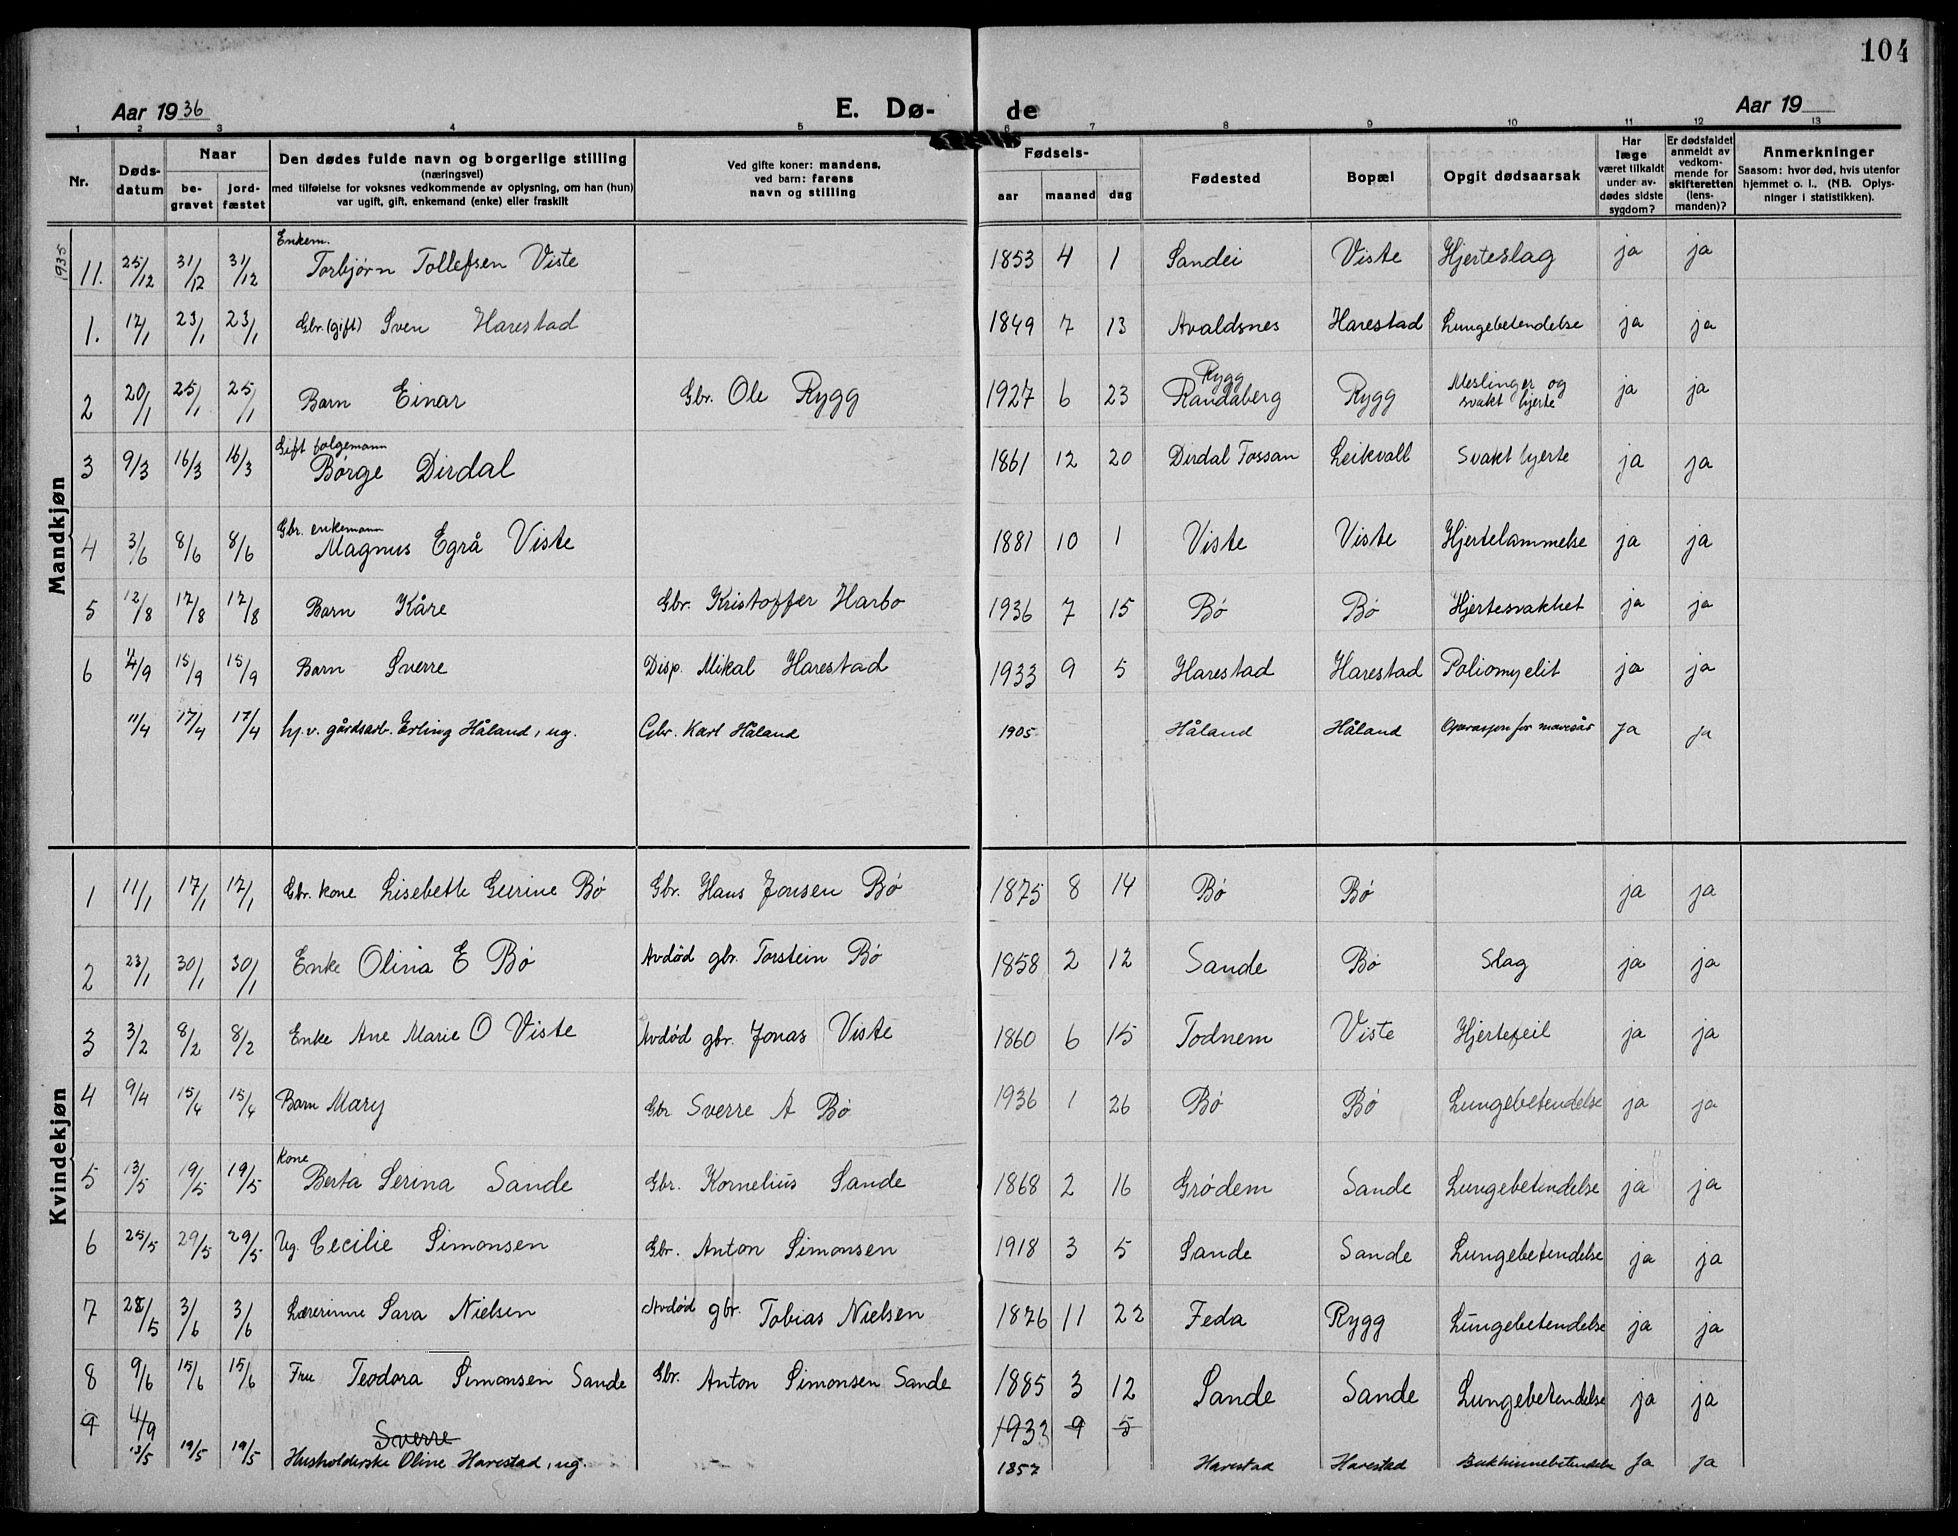 104
Aar 1936 E. Dø- de Aar 19
1 2 3 4 5 6 7 8 9 10 11 12 13
Nr. Døds-datum Naar be-gravet jord-fæstet Den dødes fulde navn og borgerlige stilling (næringsvei) med tilføielse for voksnes vedkommende av oplysning, om han (hun) var ugift, gift, enkemand (enke) eller fraskilt Ved gifte koner: mandens, ved barn: farens navn og stilling Fødsels- aar maaned dag Fødested Bopæl Opgit dødsaarsak Har læge været tilkaldt under av-dødes sidste sygdom? Er dødsfaldet anmeldt av vedkom-mende for skifteretten (lens-manden)? Anmerkninger Saasom: hvor død, hvis utenfor hjemmet o. l., (NB. Oplys-ninger i statistikken).
Mandkjøn
1935 11. 25/12 31/12 31/12 Enkem. Torbjørn Tollefsen Viste 1853 4 1 Sandei Viste Hjerteslag ja ja
1. 17/1 23/1 23/1 Gbr. (gift) Sven Harestad 1849 7 13 Avaldsnes Harestad Lungebetendelse ja ja
2 20/1 25/1 25/1 Barn Einar Gbr. Ole Rygg 1927 6 23 Rygg Randaberg Rygg Meslinger og svakt hjerte ja ja
3 9/3 16/3 16/3 Gift følgemann Børge Dirdal 1861 12 20 Dirdal Fossan Leikvoll Svakt hjerte ja ja
4 3/6 8/6 8/6 Gbr. enkemann Magnus Egrå Viste 1881 10 1 Viste Viste Hjertelammelse ja ja
5 12/8 17/8 17/8 Barn Kåre Gbr. Kristoffer Harbo 1936 7 15 Bø Bø Hjertesvakhet ja ja
6 11/9 15/9 15/9 Barn Sverre Disp. Mikal Harestad 1933 9 5 Harestad Harestad Poliomyelit ja ja
11/4 17/4 17/4 hj.v. gårdsarb. Erling Håland, ug. Gbr. Karl Håland 1905 Håland Håland Operasjon for mavesår ja ja
Kvindekjøn
1 11/1 17/1 17/1 Gbr. kone Lisebette Gurine Bø Gbr. Hans Jonsen Bø 1875 8 14 Bø Bø ja ja
2 23/1 30/1 30/1 Enke Olina E Bø Avdød gbr. Torstein Bø 1858 2 12 Sande Bø Slag ja ja
3 3/2 8/2 8/2 Enke Ane Marie O Viste Avdød gbr. Jonas Viste 1860 6 15 Todnem Viste Hjertefeil ja ja
4 9/4 15/4 15/4 Barn Mary Gbr Sverre A Bø 1936 1 26 Bø Bø Lungebetendelse ja ja
5 13/5 19/5 19/5 Kone Berta Serina Sande Gbr. Kornelius Sande 1868 2 16 Grødem Sande Lungebetendelse ja ja
6 25/5 29/5 29/5 Ug. Cecilie Simonsen Gbr. Anton Simonsen 1918 3 5 Sande Sande Lungebetendelse ja ja
7 28/5 3/6 3/6 Lærerinne Sara Nielsen Avdød gbr. Tobias Nielsen 1876 11 22 Feda Rygg Lungebetendelse ja ja
8 9/6 15/6 15/6 Fru Teodora Simonsen Sande Gbr. Anton Simonsen Sande 1885 3 12 Sande Sande Lungebetendelse ja ja
9 11/9 Sverre 1933 9 5
13/5 19/5 19/5 Husholderske Oline Harestad, ug. 1857 Harestad Harestad Bukhinnebetendelse ja ja